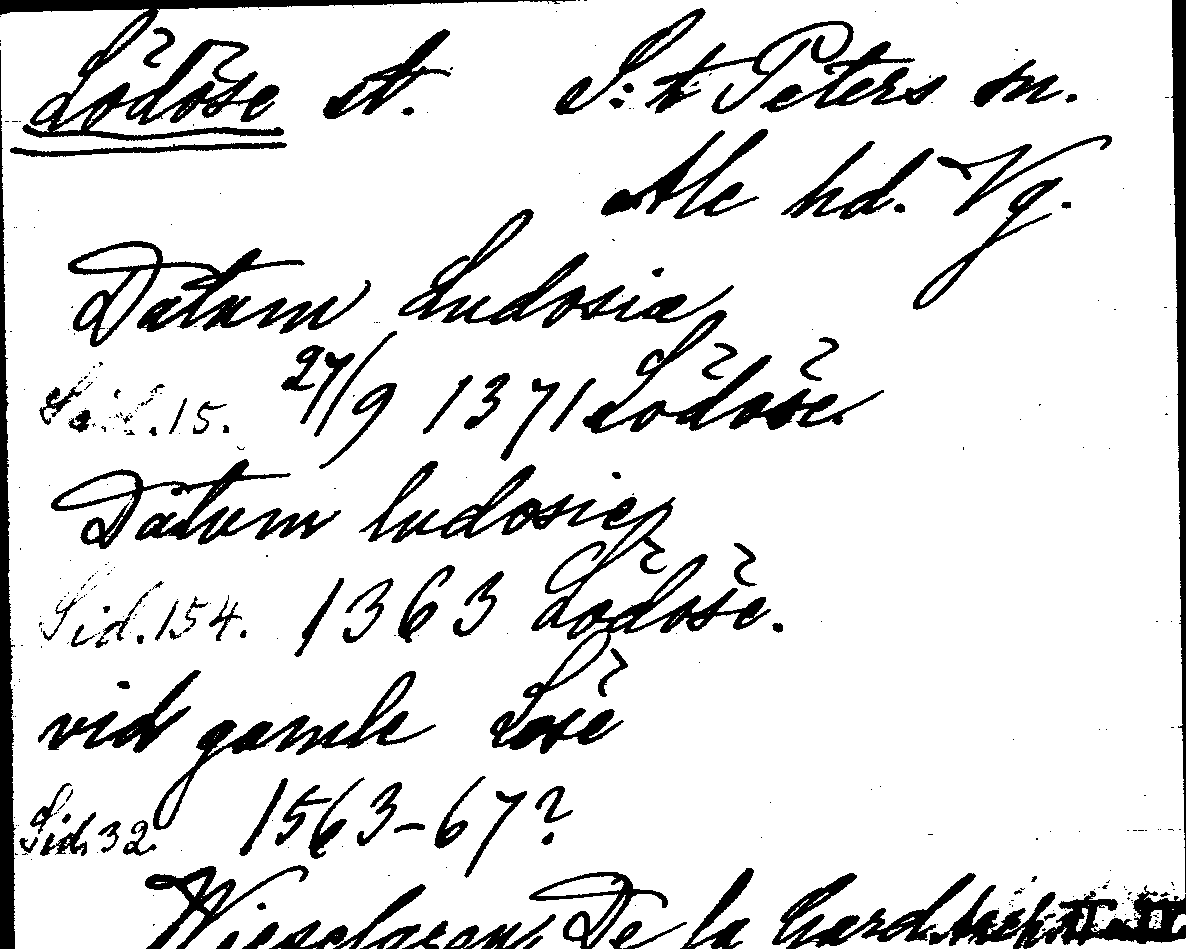 Lödöse st. S:t Peters sn.
Ale hd. Vg.
Datum Ludosia
Sid. 15. 27/9 1371 Lödöse.
Datum ludosie
Sid. 154. 1363 Lödöse.
vid gamle Losè
Sid. 32. 1563-67?
Wieselgren, De la Gard. Arch.